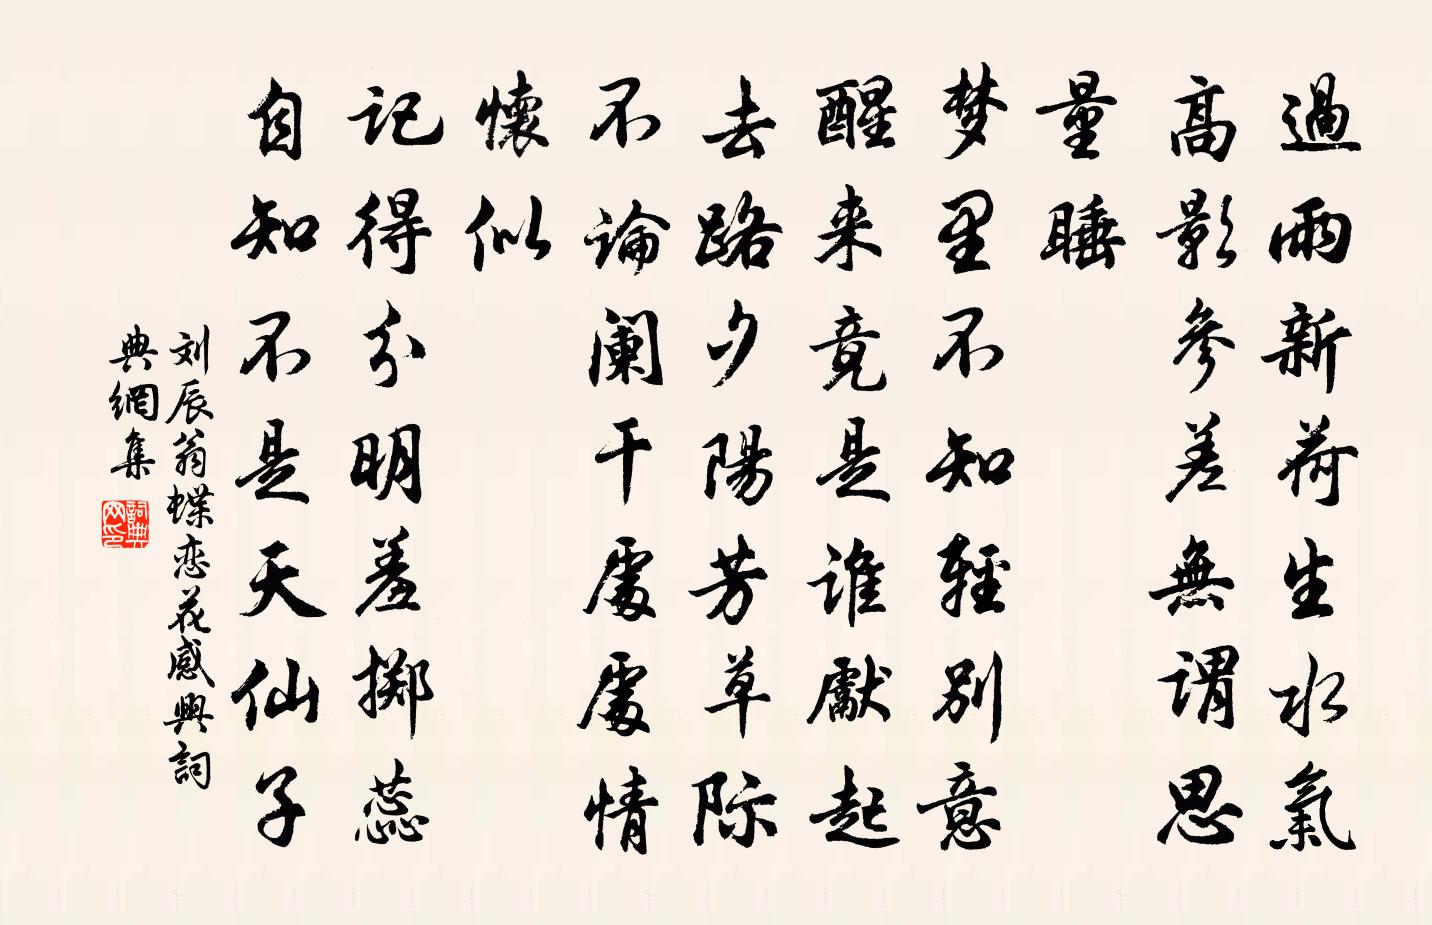 過雨新荷生水氣
高影參差無謂思
量睡
梦里不知輕別意
醒来竟是谁獻起
去路夕陽芳草际
不論阑干處處情
懷似
記得分明羞掷蕊
自知不是天仙子
刘辰翁蝶恋花感興詞
典網集
詞典网印